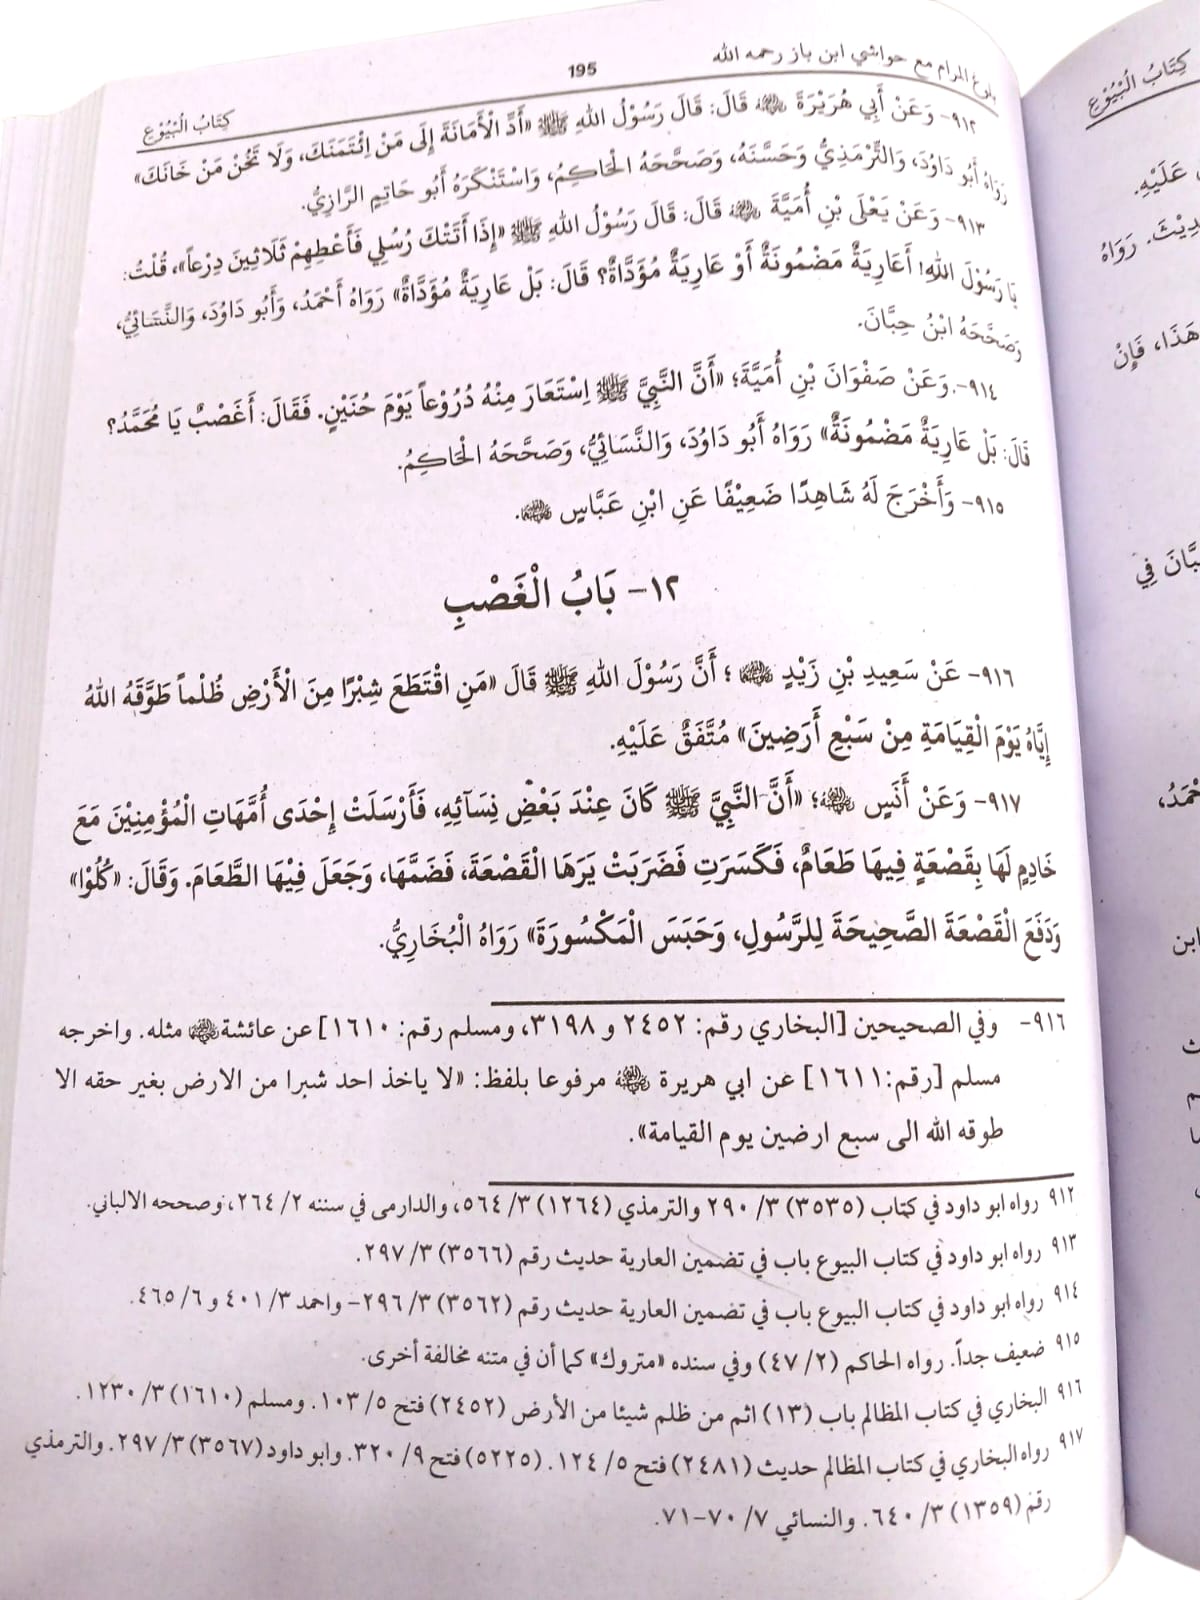 بلوغ المرام مع حواشي ابن باز رحمه الله
195
كِتَابُ الْبُيُوْعِ
٩١٢- وَعَنْ أَبِي هُرَيْرَةَ ﵁ قَالَ: قَالَ رَسُوْلُ اللهِ ﷺ «أَدِّ الْأَمَانَةَ إِلَى مَنْ اِئْتَمَنَكَ، وَلَا تَخُنْ مَنْ خَانَكَ»
رَوَاهُ أَبُو دَاوُدَ، وَالتِّرْمَذِيُّ وَحَسَّنَهُ، وَصَحَّحَهُ الْحَاكِمُ، وَاسْتَنْكَرَهُ أَبُو حَاتِمٍ الرَّازِيُّ.
٩١٣- وَعَنْ يَعْلَى بْنِ أُمَيَّةَ ﵁ قَالَ: قَالَ رَسُوْلُ اللهِ ﷺ «إِذَا أَتَتْكَ رُسُلِي فَأَعْطِهِمْ ثَلَاثِينَ دِرْعاً»، قُلْتُ:
يَا رَسُوْلَ اللهِ! أَعَارِيَةٌ مَضْمُونَةٌ أَوْ عَارِيَةٌ مُؤَدَّاةٌ؟ قَالَ: بَلْ عَارِيَةٌ مُؤَدَّاةٌ» رَوَاهُ أَحْمَدُ، وَأَبُو دَاوُدَ، وَالنَّسَائِيُّ،
وَصَحَّحَهُ ابْنُ حِبَّانَ.
٩١٤-.وَعَنْ صَفْوَانَ بْنِ أُمَيَّةَ؛ «أَنَّ النَّبِيَّ ﷺ اِسْتَعَارَ مِنْهُ دُرُوْعاً يَوْمَ حُنَيْنٍ. فَقَالَ: أَغَصْبٌ يَا مُحَمَّدُ؟
قَالَ: بَلْ عَارِيَةٌ مَضْمُونَةٌ» رَوَاهُ أَبُو دَاوُدَ، وَالنَّسَائِيُّ، وَصَحَّحَهُ الْحَاكِمُ.
٩١٥- وَأَخْرَجَ لَهُ شَاهِدًا ضَعِيْفًا عَنِ ابْنِ عَبَّاسٍ ﵄.
١٢- بَابُ الْغَصْبِ
٩١٦- عَنْ سَعِيدِ بْنِ زَيْدٍ ﵁ ؛ أَنَّ رَسُوْلَ اللهِ ﷺ قَالَ «مَنِ اقْتَطَعَ شِبْرًا مِنَ الْأَرْضِ ظُلْماً طَوَّقَهُ اللهُ
إِيَّاهُ يَوْمَ الْقِيَامَةِ مِنْ سَبْعِ أَرَضِينَ» مُتَّفَقٌ عَلَيْهِ.
٩١٧- وَعَنْ أَنَسٍ ﵁؛ «أَنَّ النَّبِيَّ ﷺ كَانَ عِنْدَ بَعْضِ نِسَآئِهِ، فَأَرْسَلَتْ إِحْدَى أُمَّهَاتِ الْمُؤْمِنِيْنَ مَعَ
خَادِمٍ لَهَا بِقَصْعَةٍ فِيهَا طَعَامٌ، فَكَسَرَتِ فَضَرَبَتْ يَرَهَا الْقَصْعَةَ، فَضَمَّهَا، وَجَعَلَ فِيْهَا الطَّعَامَ. وَقَالَ: «كُلُوْا»
وَدَفَعَ الْقَصْعَةَ الصَّحِيحَةَ لِلرَّسُولِ، وَحَبَسَ الْمَكْسُورَةَ» رَوَاهُ الْبُخَارِيُّ.
٩١٦- وفي الصحيحين [البخاري رقم: ٢٤٥٢ و ٣١٩٨، ومسلم رقم: ١٦١٠] عن عائشة﵂ مثله. واخرجه
مسلم [رقم:١٦١١] عن ابي هريرة ﵁ مرفوعا بلفظ: «لا ياخذ احد شبرا من الارض بغير حقه الا
طوقه الله الى سبع ارضين يوم القيامة».
٩١٢ رواه ابو داود في كتاب (٣٥٣٥) ٣/ ٢٩٠ والترمذي (١٢٦٤) ٣/ ٥٦٤، والدارمى في سننه ٢/ ٢٦٤، وصححه الالباني.
٩١٣ رواه ابو داود في كتاب البيوع باب في تضمين العارية حديث رقم (٣٥٦٦) ٣/ ٢٩٧.
٩١٤ رواه ابو داود في كتاب البيوع باب في تضمين العارية حديث رقم (٣٥٦٢) ٣/ ٢٩٦- واحمد ٣/ ٤٠١ و ٦/ ٤٦٥.
٩١٥ ضعيف جداً. رواه الحاكم (٢/ ٤٧) وفي سنده «متروك» كما أن في متنه مخالفة أخرى.
٩١٦ البخاري في كتاب المظالم باب (١٣) اثم من ظلم شيئا من الأرض (٢٤٥٢) فتح ٥/ ١٠٣. ومسلم (١٦١٠) ٣/ ١٢٣٠.
٩١٧ رواه البخاري في كتاب المظالم حديث (٢٤٨١) فتح ٥/ ١٢٤. (٥٢٢٥) فتح ٩/ ٣٢٠. وابو داود (٣٥٦٧) ٣/ ٢٩٧. والترمذي
رقم (١٣٥٩) ٣/ ٦٤٠. والنسائي ٧/ ٧٠-٧١.
كِتَابُ الْبُيُوْعِ
عَلَيْهِ.
رَوَاهُ
هَذَا، فَإِنْ
فِي
ابن